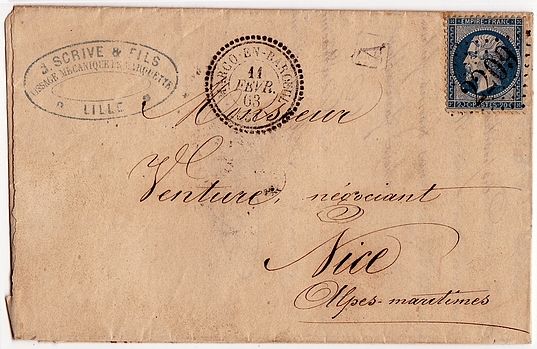 J. SCRIVE & FILS
TISSAGE MÉCANIQUE DE
LILLE
MARCQ-EN-BARŒUL
11
FÉVR.
63
A
EMPIRE FRANC
20 C POSTES 20 C
Monsieur
Venture, négociant
Nice
Alpes-maritimes